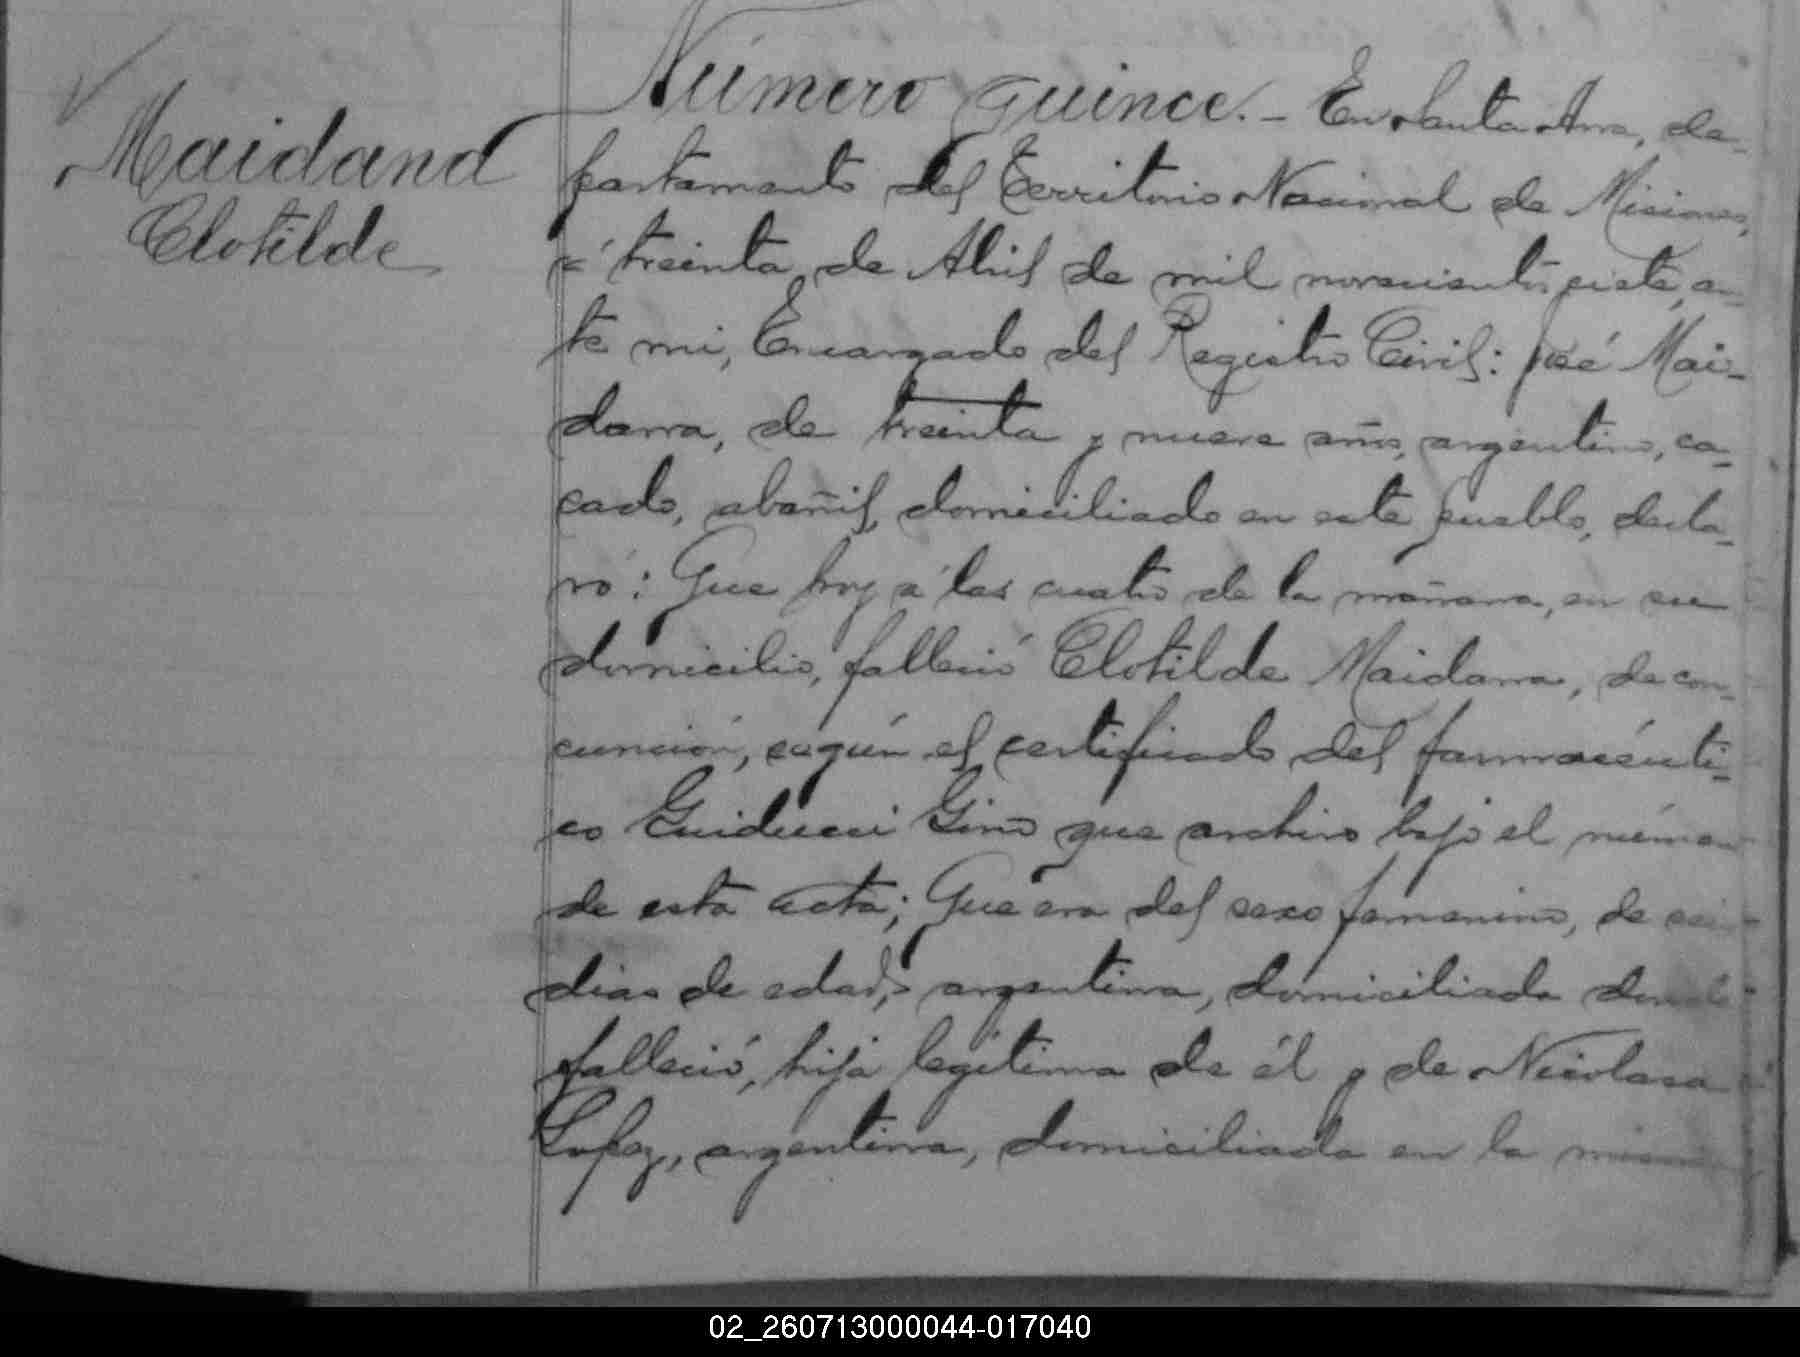 Maidana
Clotilde
Número Quince.- En Santa Ana, de-
partamento del Territorio Nacional de Misiones,
á treinta de Abril de mil novecientos siete, an-
te mi, Encargado del Registro Civil: José Mai-
dana, de treinta y nueve años, argentino, ca-
sado, abañil, domiciliado en este pueblo, decla-
ró: Que hoy á las cuatro de la mañana, en su
domicilio, falleció Clotilde Maidana, de con-
sunción, según el certificado del farmacéuti-
co Guiducci Gino que archivo bajo el número
de esta acta; Que era del sexo femenino, de
dias de edad, argentina, domiciliada donde
falleció, hija legítima de él y de Nicolasa
Lopez, argentina, domiciliada en la misma
02_260713000044-017040